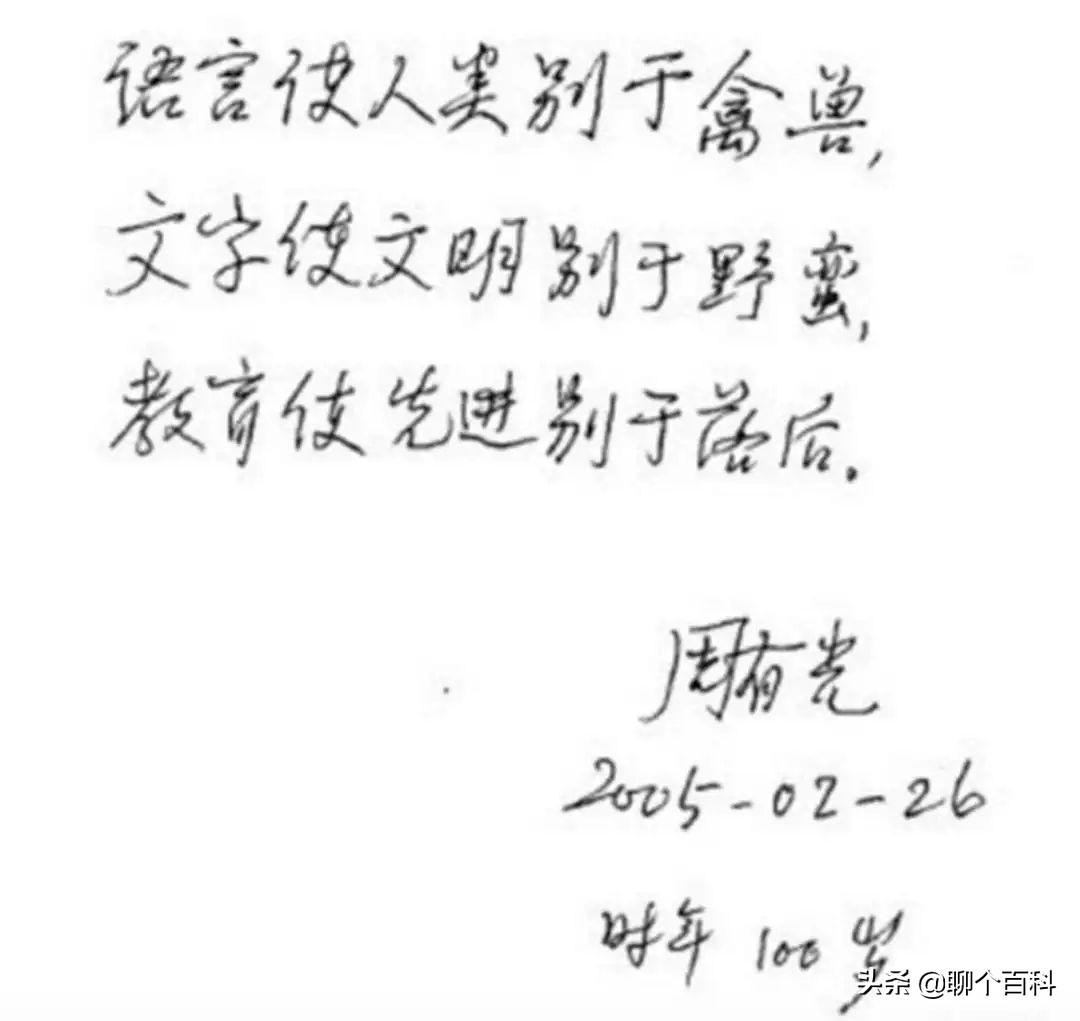 语言使人类别于禽兽,
文字使文明别于野蛮,
教育使先进别于落后.
周有光
2005-02-26
时年 100 岁
头条 @聊个百科